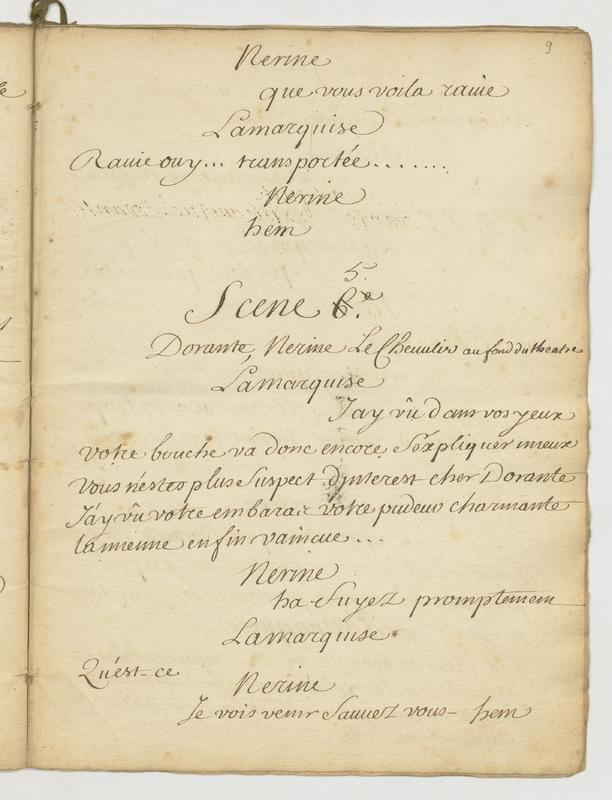 9
Nerine
que vous voila rauie
Lamarquise
Rauie ouy... transportée.......
Nerine
hem
5.
Scene 6.e
Dorante, Nerine Le Cheualier au fond du theatre
Lamarquise
J'ay vû dans vos yeux
votre bouche va donc encore s'expliquer mieux
vous n'estes plus suspect d'jnterest cher Dorante
J'ay vû votre embaras votre pudeur charmante
la mienne enfin vaincue...
Nerine
ha fuyez promptement
Lamarquise
Qu'est-ce
Nerine
Je vois venir sauuez vous- hem